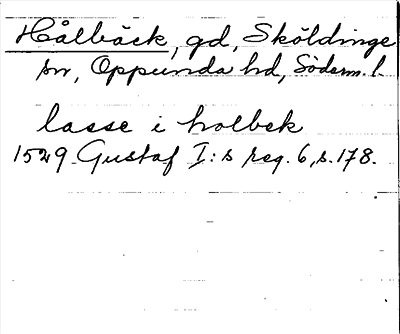 Hålbäck, gd, Sköldinge
sn, Oppunda hd, Söderm. l.
lasse i holbek
1529 Gustaf I:s reg. 6, s. 178.